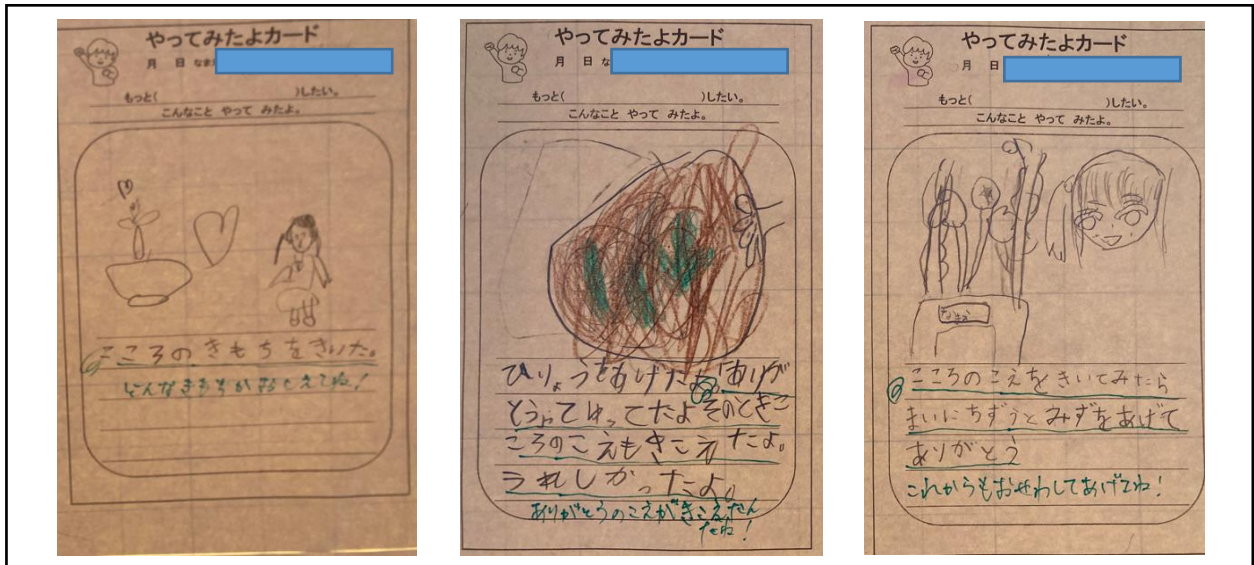 やってみたよカード
月 日 なまえ
もっと( )したい。
こんなこと やって みたよ。
こころのきもちをきいた。
どんなきもちかおしえてね!
やってみたよカード
月 日 な
もっと( )したい。
こんなこと やって みたよ。
ひりょうをあげたお「ありが
とうってゆってたよそのときこ
ころのこえもきこえたよ。
うれしかったよ。
ありがとうのこえがきこえたん
だね!
やってみたよカード
月 日
もっと( )したい。
こんなこと やって みたよ。
なまえ
こころのこえをきいてみたら
まいにちずうとみずをあげて
ありがとう
これからもおせわしてあげてね!